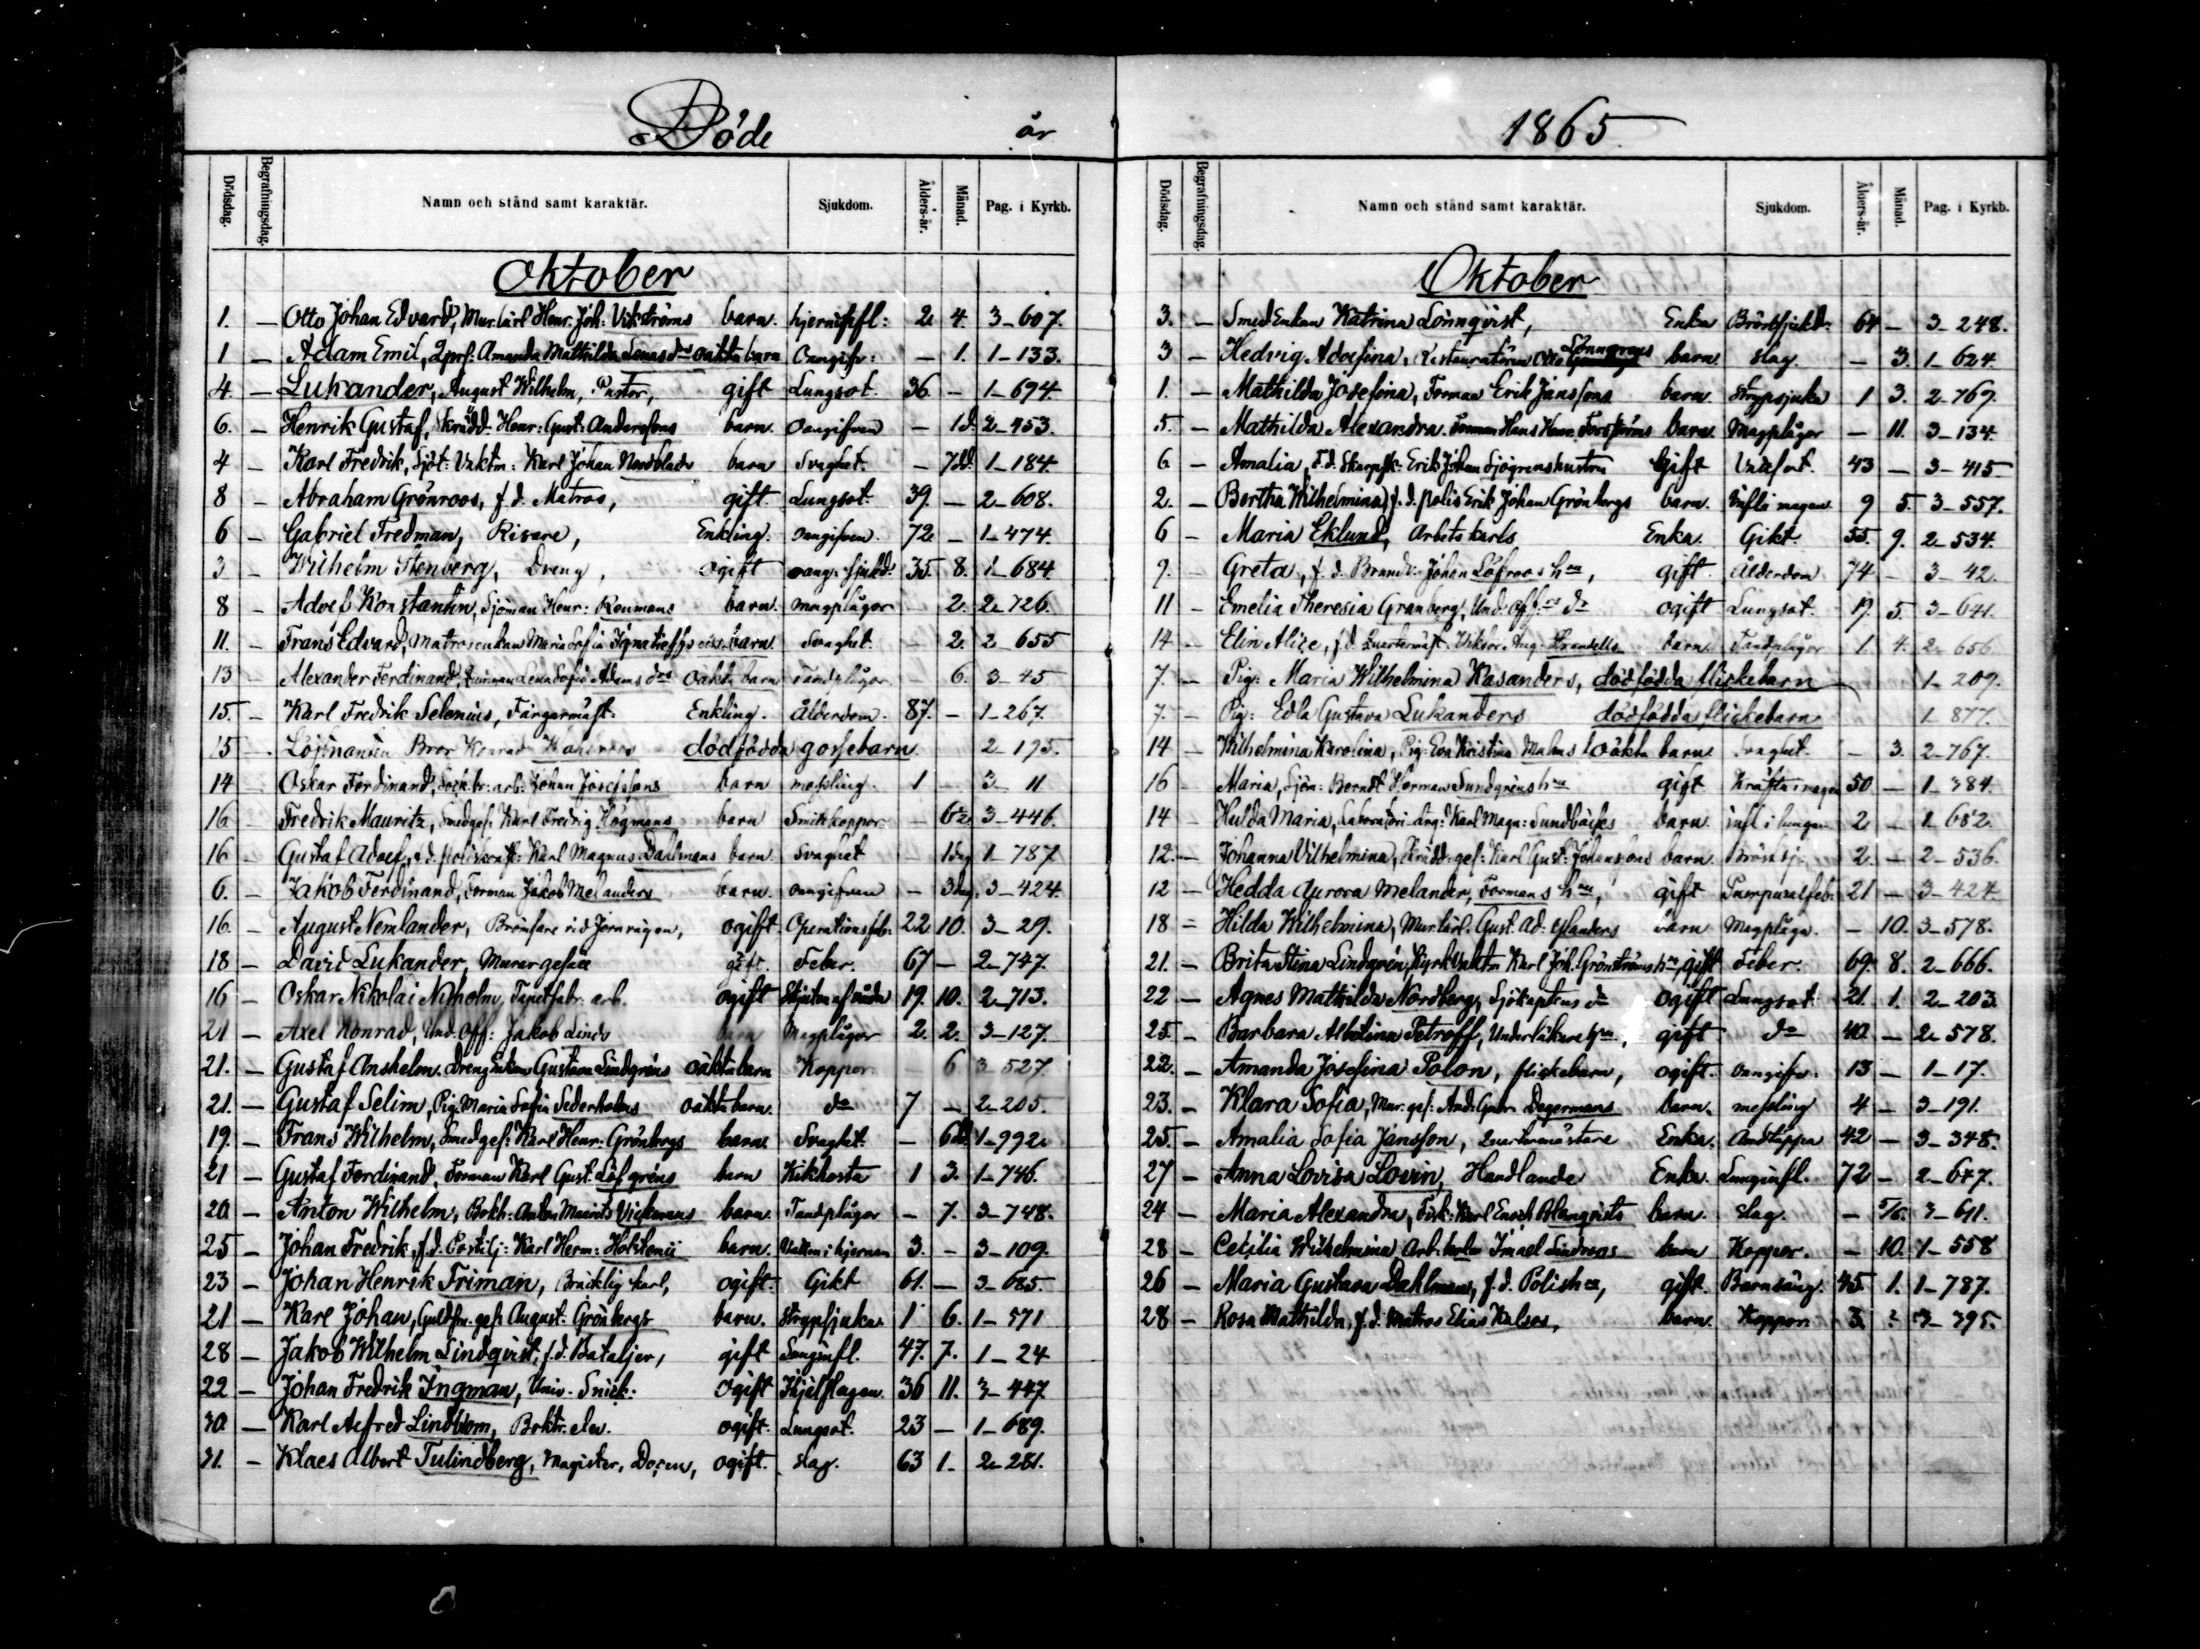 Döde år 1865
Dödsdag. Begrafningsdag. Namn och stånd samt karaktär. Sjukdom. Ålders-år. Månad. Pag. i Kyrkb.
Oktober
1. — Otto Johan Edvard, Mur.lärl. Henr. Joh: Vikströms barn. hjerninfl: 2 4. 3-607.
1 — Adam Emil, Qprs: Amanda Mathilda oäkta barn Oangifv: — 1. 1-133.
4 — Lukander, August Wilhelm, Pastor, gift Lungsot. 36 — 1-694.
6. — Henrik Gustaf, Skrädd. Henr: Gust: Anderssons barn. Oangifven — 1d. 2-453.
4 — Karl Fredrik, Sjöt: Vaktm: Karl Johan Nordblads barn Svaghet. — 7dd. 1-184.
8 — Abraham Grönroos, f.d. Matros, gift. Lungsot. 39. — 2-608.
6 — Gabriel Fredman, Risare, Enkling. oangifven. 72 — 1-474.
3 — Wilhelm Stenberg, Dreng, ogift oang: sjukd. 35. 8. 1-684.
8 — Adolf Konstantin, Sjöman Henr: Reumans barn. magplågor 2. 2-726.
11. — Frans Edvard, Matrosenkan Maria Sofia Ignatieffs barn. Svaghet. — 2. 2 655
13 — Alexander Ferdinand, Lena Sofia Adams drs oäkta barn Tandplågor. — 6. 3-45
15. — Karl Fredrik Selenius, Färgarmäst: Enkling. Ålderdom. 87. — 1-267.
15 — Bror Konrad dödfödda gossebarn 2 175.
14 — Oskar Ferdinand, Johan Josefssons barn messling. 1 — 3 11
16 — Fredrik Mauritz, Smedges. Karl Fredrig Högmans barn Smittkoppor — 6½ 3-446.
16 — Gustaf Adolf, Karl Magnus Dahlmans barn. Svaghet — 1dag 1-787
6. — Jakob Ferdinand, Forman Jakob Melanders barn. oangifven — 3dag. 3-424.
16 — August Nemlander, vid Jernvägen, ogift. Operationsfeb: 22 10. 3-29.
18 — David Lukander, Murargesäll gift. Feber. 67 — 2-747.
16 — Oskar Nikolai Nyholm, Tapetfabr. arb. ogift Skjuten af våda 19. 10. 2-713.
21 — Axel Konrad, Und. Off: Jakob Linds barn Magplågor 2. 2. 3-127.
21. — Gustaf Anshelm. Drengenkan Gustava Lindgréns oäkta barn Koppor. 6 3 527.
21. — Gustaf Selim, Pig. Maria Sofia Sederholms oäkta barn. do 7 — 2-205.
19. — Frans Wilhelm, Smedges: Karl Henr: Grönbergs barn. Svaghet. — 6dd. 1-992.
21 — Gustaf Ferdinand, Forman Karl Gust. Löfgréns barn Kikhosta 1 3. 1-746.
20 — Anton Wilhelm, Bokh: Anton Maurits Vickmans barn. Tandplågor — 7. 3-748.
25 — Johan Fredrik, f.d. Postilj: Karl Herm: Holstenii barn. Vatten i hjernan 3. — 3-109.
23 — Johan Henrik Friman, Bräcklig karl, ogift. Gikt 61. — 3-685.
21 — Karl Johan, Guldsm. ges: August Grönbergs barn. Strypsjuka 1 6. 1-571
28 — Jakob Wilhelm Lindqvist, f.d. Bataljer, gift Lunginfl. 47. 7. 1-24
22 — Johan Fredrik Ingman, Univ. Snick: ogift Ihjälslagen 36 11. 3-447
30. — Karl Alfred Lindblom, Boktr. elev. ogift. Lungsot. 23 — 1-689.
31. — Klaes Albert Tulindberg, Magister, Docen, ogift. slag. 63 1. 2-281.
Dödsdag. Begrafningsdag. Namn och stånd samt karaktär. Sjukdom. Ålders-år. Månad. Pag. i Kyrkb.
Oktober
3. — Smedenkan Katrina Lönnqvist, Enka Bröstsjukd. 64 — 3-248.
3 — Hedvig Adolfina, Restauratören Otto Lönngrens barn slag. — 3. 1-624.
1. — Mathilda Josefina, Forman Erik Janssons barn. Strypsjuka 1 3. 2-769.
5. — Mathilda Alexandra. Forman Hans Henr. Forsströms barn. Magplågor — 11. 3-134.
6 — Amalia, f.d. Skarpsk: Erik Johan Sjögrens hustru Gift 43 — 3-415
2. — Bertha Wilhelmina, f.d. polis Erik Johan Grönbergs barn. Infl i magen 9 5. 3-557.
6 — Maria Eklund, Arbetskarls Enka. Gikt. 55. 9. 2-534.
9. — Greta, f.d. Brandv. Johan Löfroos hru, gift. Ålderdom 74 — 3-42.
11 — Emelia Theresia Granberg, Und. Off:rs dr ogift Lungsot. 19. 5. 3-641.
14 — Elin Alice, f.d. Quartermäst. Viktor Aug: Strandells barn Tandplågor 1 4. 2-656
7. — Pig: Maria Wilhelmina Kasanders, dödfödda flickebarn — 1-209.
7. — Pig: Edla Gustava Lukanders dödfödda flickebarn 1-877.
14 — Wilhelmina Karolina, Pig: Eva Kristina Malms oäkta barn Svaghet. — 3. 2-767.
16 — Maria, Sjöm: Berndt Herman Sundgréns hru gift Kräfta i magen 50 — 1-384.
14 — Hulda Maria, Laboratori-dräng: Karl Magn: Sundbäcks barn. Infl i lungan 2 — 1-682.
12. — Johanna Vilhelmina, Skrädd.ges: Karl Gust: Johanssons barn. Bröstsj. 2 — 2-536.
12 — Hedda Aurora Melander, Formans hru, gift Puerpuralfeb: 21 — 3-424.
18 — Hilda Wilhelmina, Mur.lärl. Gust. Ad: barn Magplåga. — 10. 3-578.
21. — Brita Stina Lindgrén, Kyrkvaktm Karl Joh. Grönströms hru, gift Feber. 69. 8. 2-666.
22 — Agnes Mathilda Nordberg, Sjökaptens dr ogift Lungsot. 21. 1. 2-203.
25. — Barbara Albertina Petroff, Underläkare hru, gift. do 40 — 2-578.
22. — Amanda Josefina Polon, flickebarn, ogift. oangifv. 13 — 1-17.
23. — Klara Sofia, Mur. ges: And: Gabr. Degermans barn. messling 4 — 3-191.
25. — Amalia Sofia Jansson, Quartermästare Enka. Andtäppa 42 — 3-348.
27 — Anna Lovisa Lovin, Handlande Enka. Lunginfl. 72 — 2-647.
24 — Maria Alexandra, Fisk: Karl Enoch Blomqvists barn. slag. — 5/6. 3-611.
28 — Cecilia Wilhelmina, Arb: karlen Imael Lindroos barn Koppor. — 10. 1-558
26 — Maria Gustava Dahlman, f.d. Polis hru, gift. Barnsäng. 45. 1. 1-787.
28 — Rosa Mathilda, f.d. Matros Elias Kalsos, barn. Koppor. 3. ? 3-395.